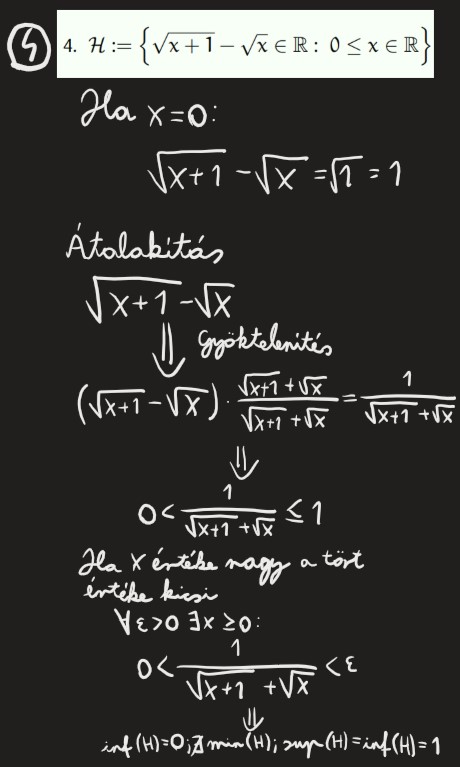 ④ 4. H := {√(x+1) − √x ∈ ℝ : 0 ≤ x ∈ ℝ}
Ha x=0:
√(x+1) - √x = √1 = 1
Átalakítás
√(x+1) - √x
⇓ Gyöktelenítés
(√(x+1) - √x) · (√(x+1) + √x)/(√(x+1) + √x) = 1/(√(x+1) + √x)
⇓
0 < 1/(√(x+1) + √x) ≤ 1
Ha x értéke nagy a tört
értéke kicsi
∀ε>0 ∃x ≥0:
0 < 1/(√(x+1) + √x) < ε
⇓
inf(H)=0; ∄ min(H); sup(H)=inf(H)=1